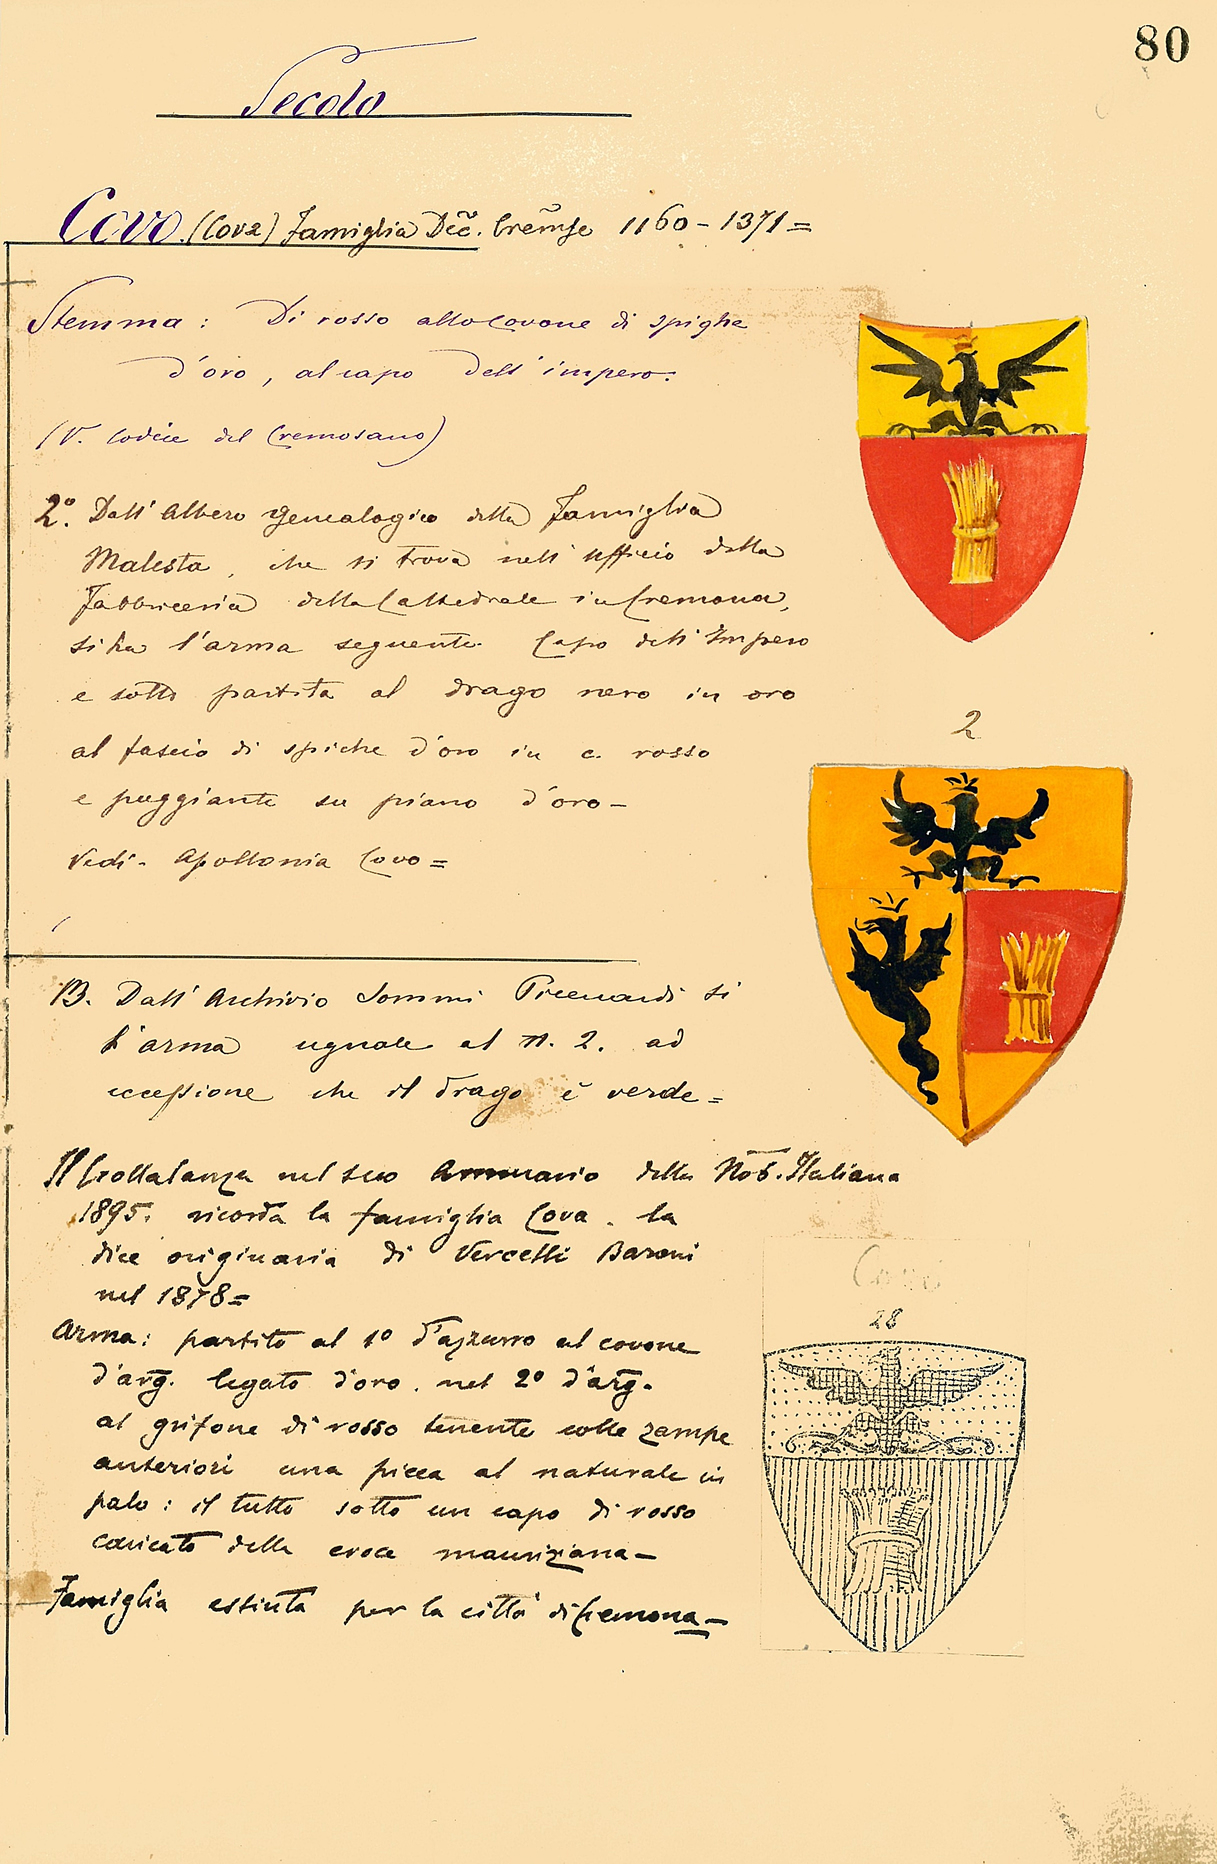 80
Secolo
Covo (Cova) Famiglia Dec. Cremse 1160-1371=
Stemma: Di rosso allo Covone di spighe
d'oro, al capo dell'impero.
(V. Codice del Cremosano)
2º. Dall'Albero genealogico della Famiglia
Malesta, che si trova nell'Ufficio della
Fabbriceria della Cattedrale in Cremona,
si ha l'arma seguente. Capo dell'Impero
e sotto partita al drago nero in oro
al fascio di spiche d'oro in c. rosso
e poggiante su piano d'oro-
Vedi- Apollonia Covo=
2
B. Dall'Archivio Sommi Picenardi si
l'arma uguale al n. 2. ad
eccessione che il drago è verde=
Il Crollalanza nel suo Annuario della Nob. Italiana
1895. ricorda la famiglia Cova. la
dice originaria di Vercelli Baroni
nel 1878=
Arma: partito al 1º d'azzurro al covone
d'arg. legato d'oro. nel 2º d'arg.
al grifone di rosso tenente colle zampe
anteriori una picca al naturale in
palo: il tutto sotto un capo di rosso
caricato della croce mauriziana-
Famiglia estinta per la città di Cremona-
28